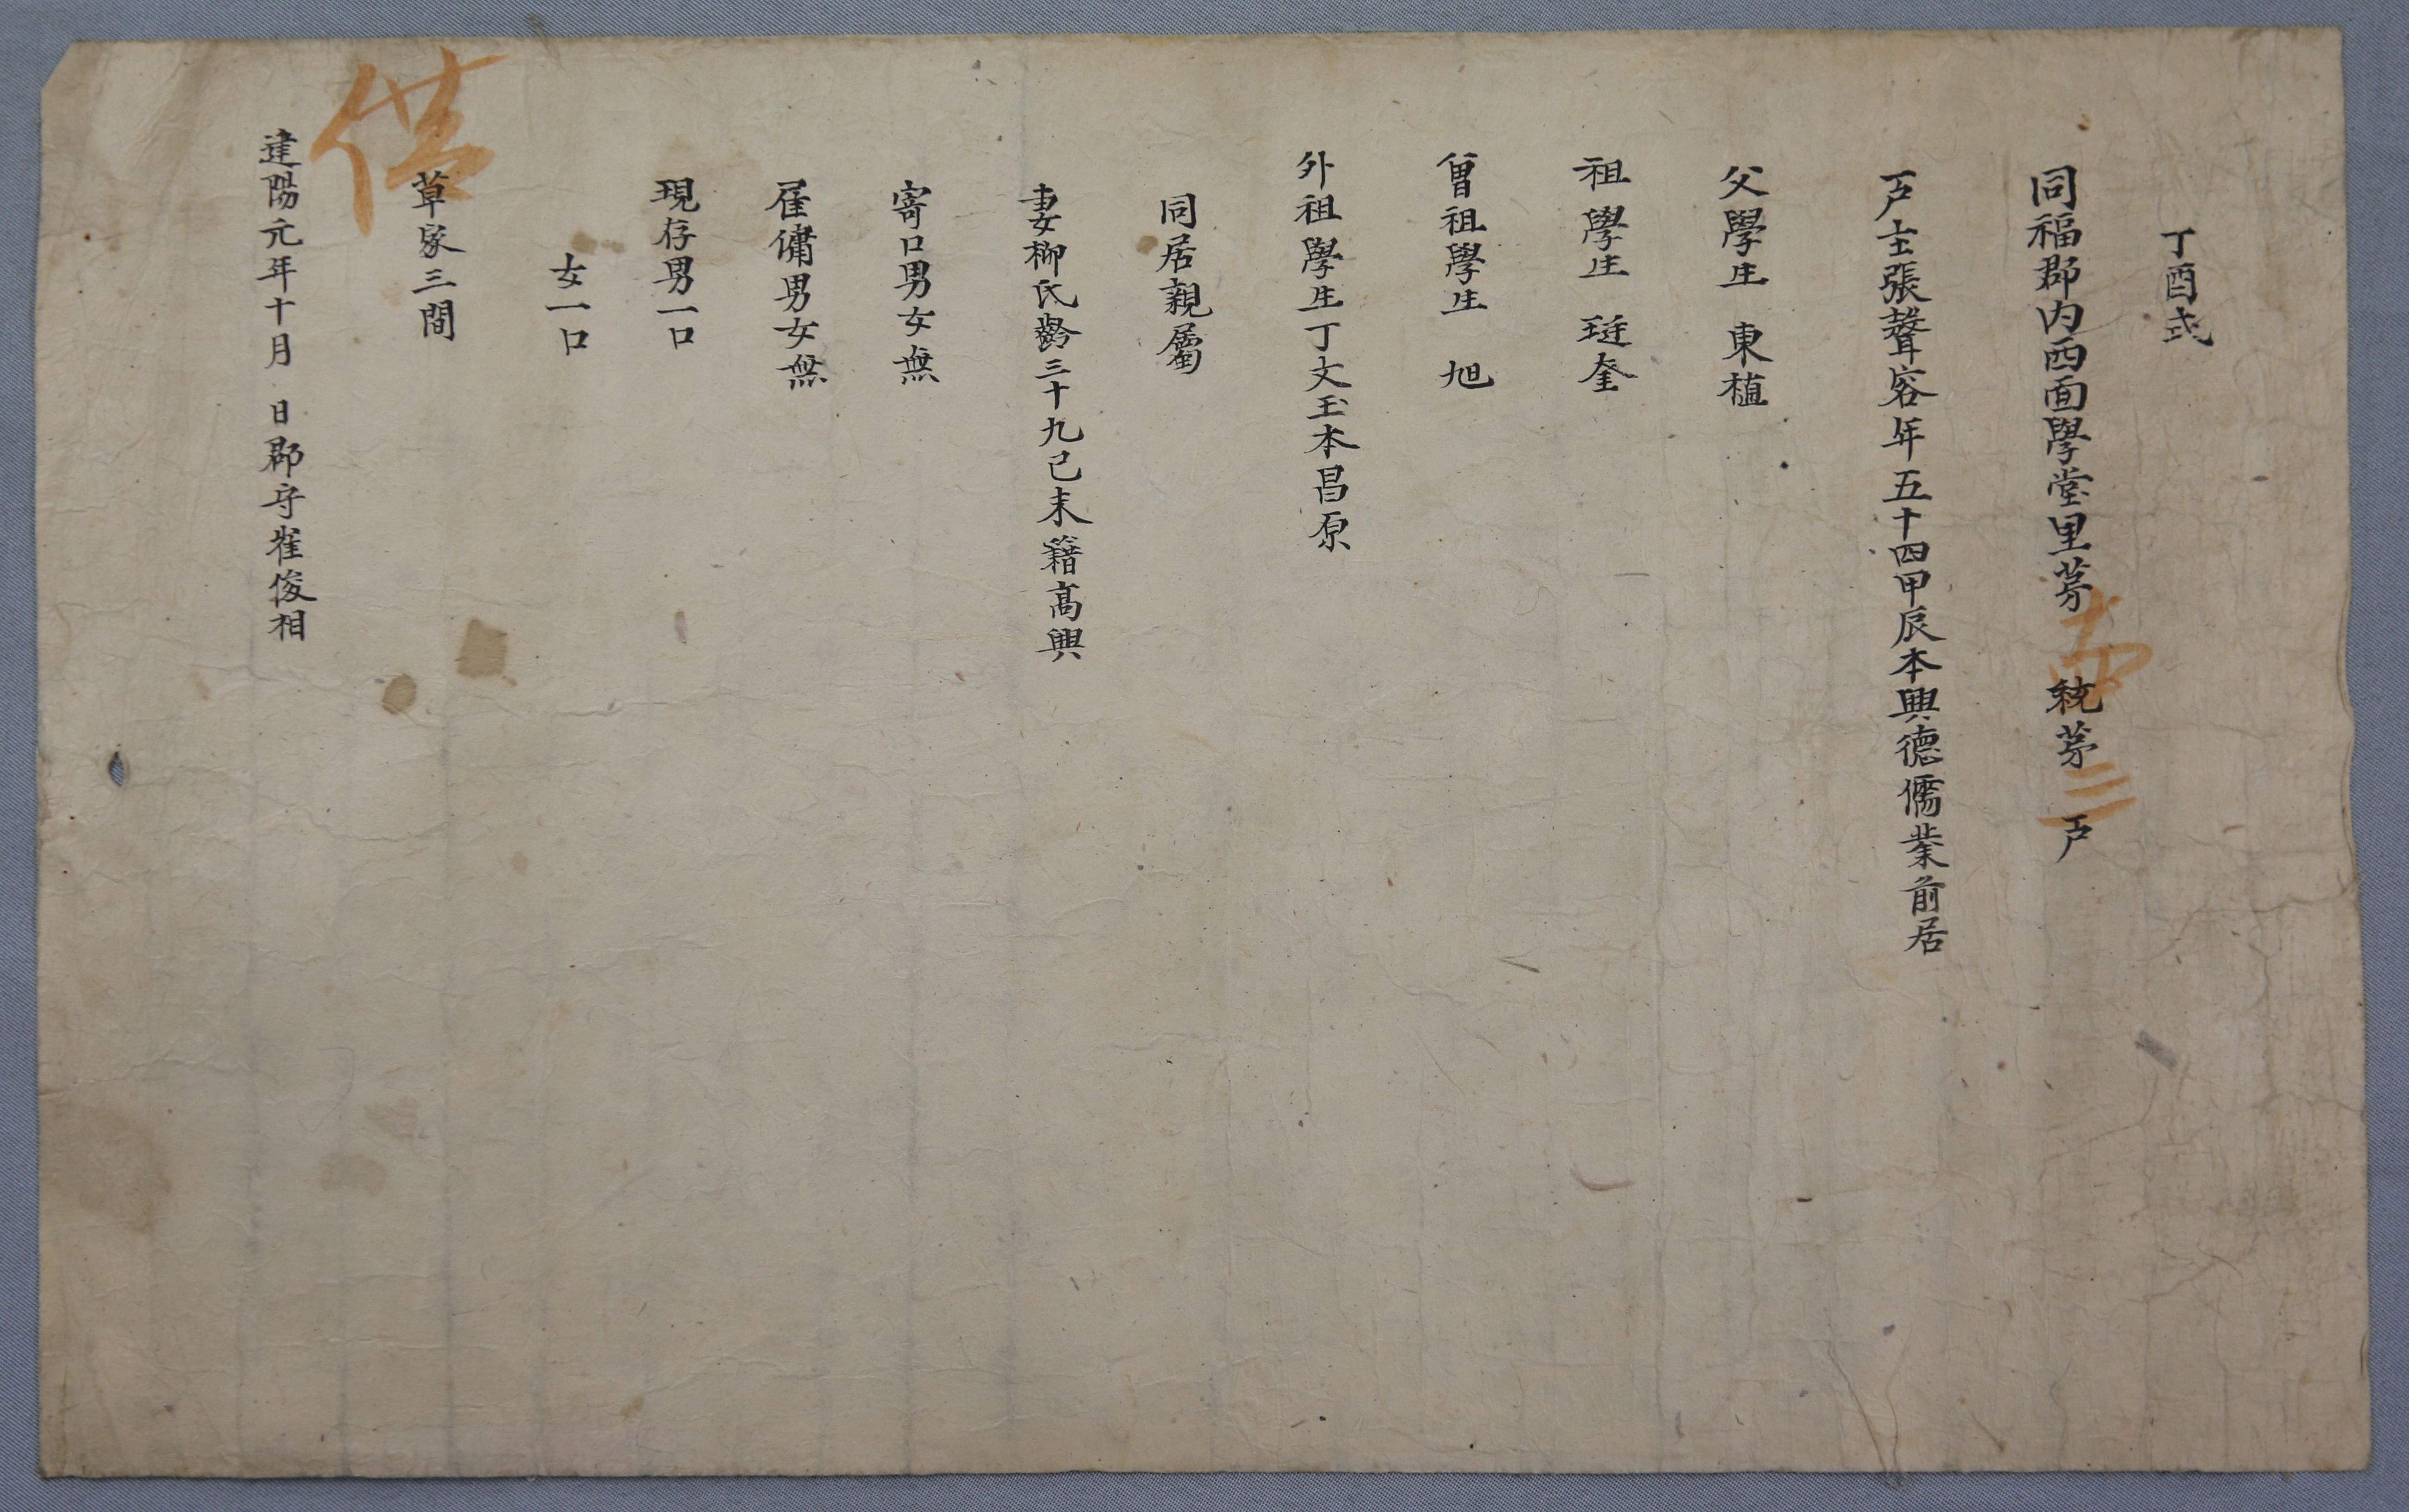 丁酉式
同福郡內西面學堂里苐十四統苐三戶
戶主張聲容年五十四甲辰本興德儒業前居
父學生 東植
祖學生 琎奎
曾祖學生 旭
外祖學生丁文玉本昌原
同居親屬
妻柳氏齡三十九己未籍高興
寄口男女無
雇傭男女無
現存男一口
女一口
草家三間
建陽元年十月 日郡守崔俊相